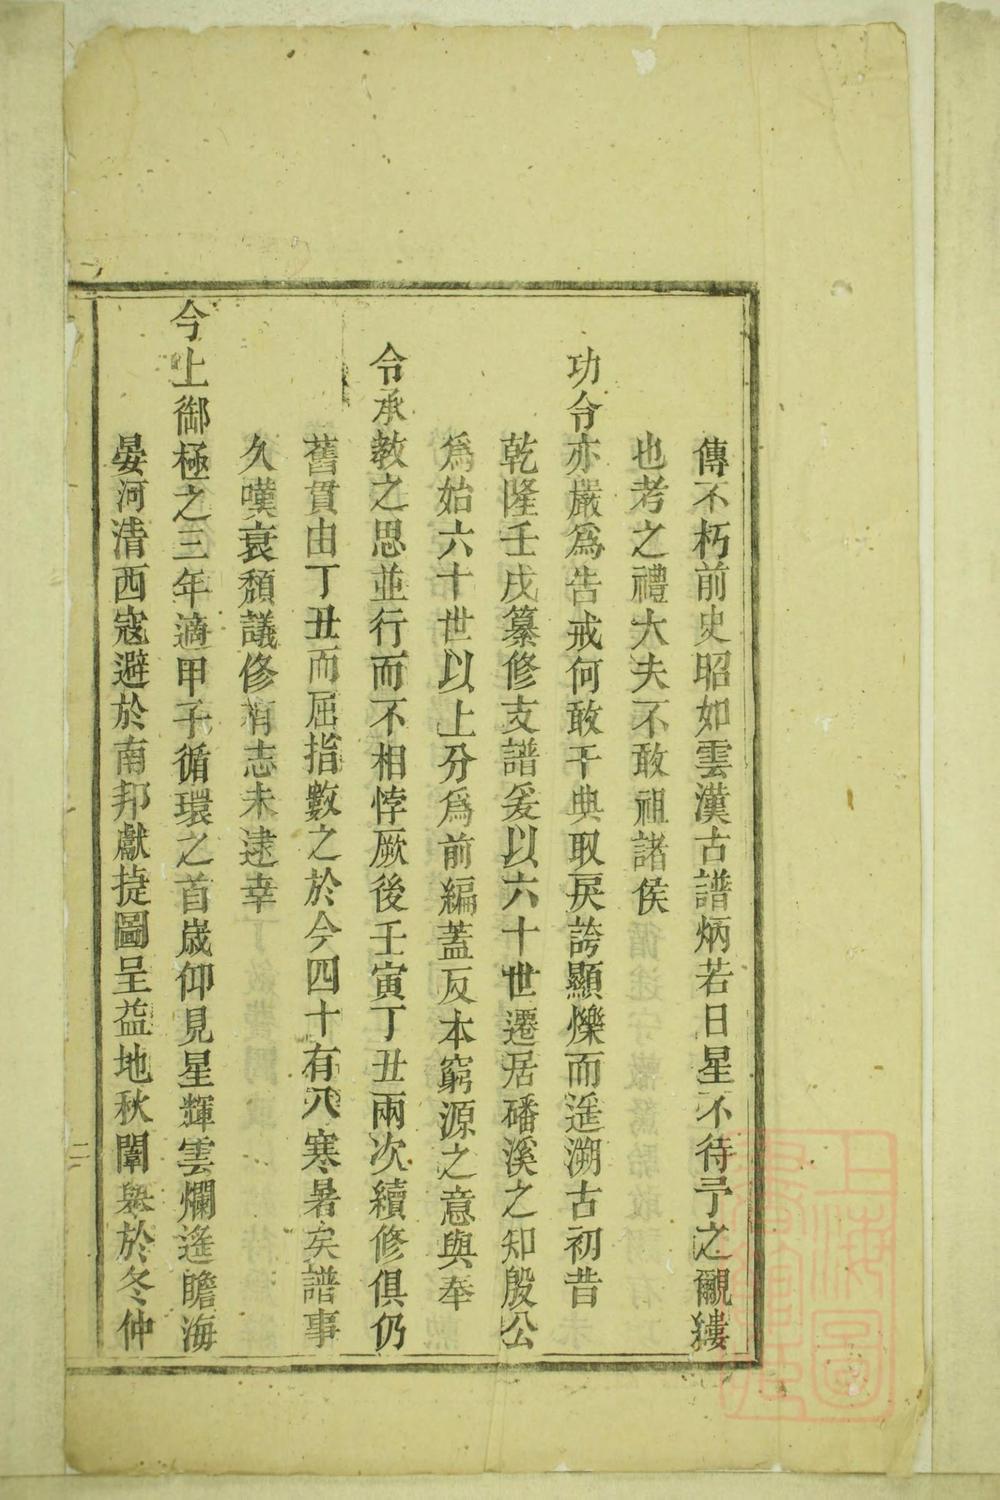 傳不朽前史昭如雲漢古譜炳若日星不待予之覼縷
也考之禮大夫不敢祖諸侯
功令亦嚴爲告戒何敢干典取戾誇顯爍而遥溯古初昔
乾隆壬戌纂修支譜爰以六十世遷居磻溪之知殷公
爲始六十世以上分爲前編蓋反本窮源之意與奉
令承教之思並行而不相悖厥後壬寅丁丑兩次續修俱仍
舊貫由丁丑而屈指數之於今四十有八寒暑矣譜事
久嘆衰頽議修有志未逮幸
今上御極之三年適甲子循環之首歲仰見星輝雲爛遙瞻海
晏河清西寇避於南邦獻捷圖呈益地秋闈舉於冬仲
二
上海圖書館藏